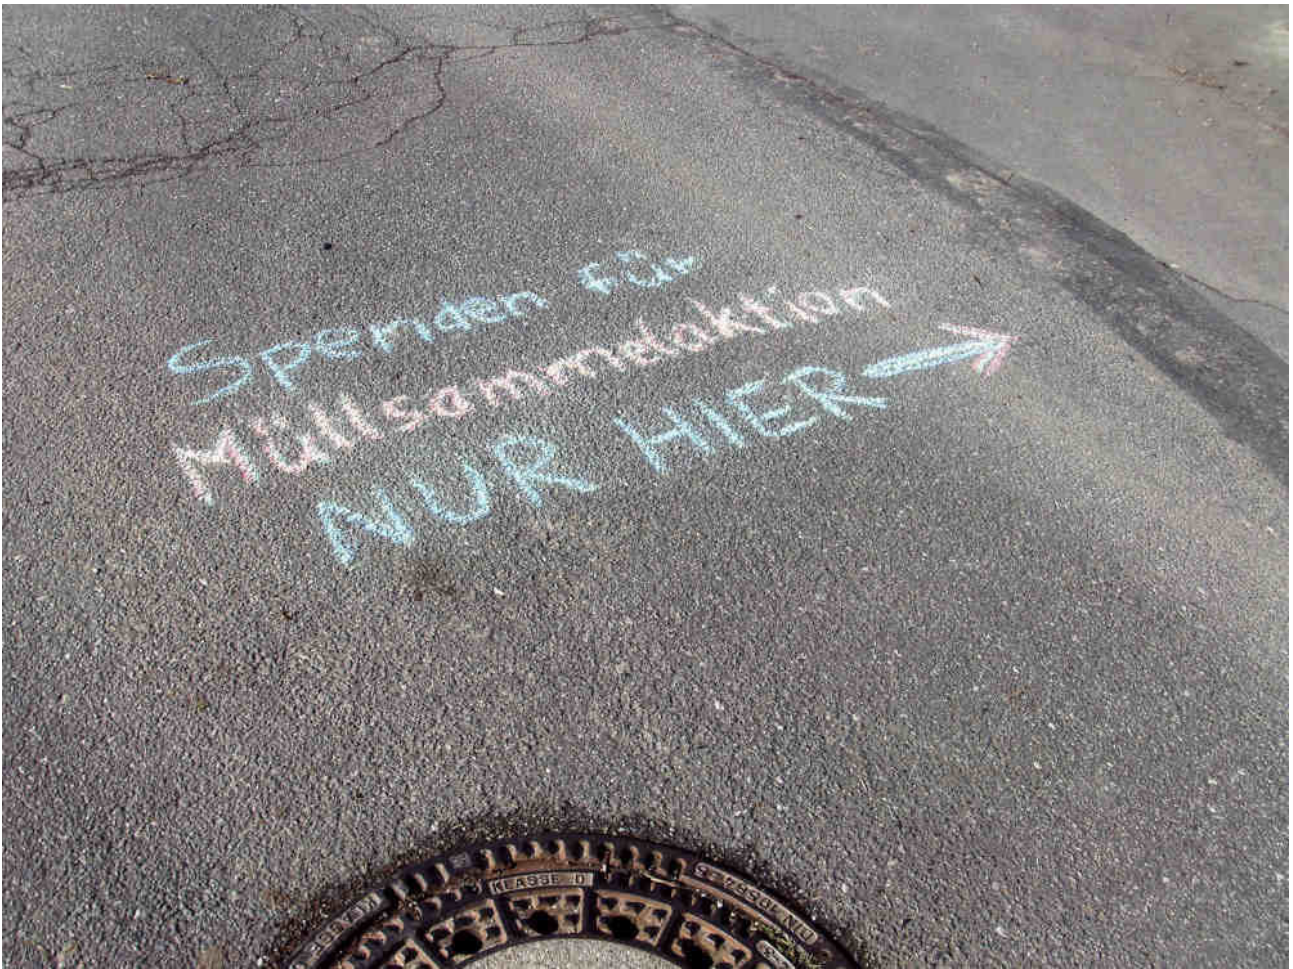 Spenden für
Müllsammelaktion
NUR HIER
KLASSE D